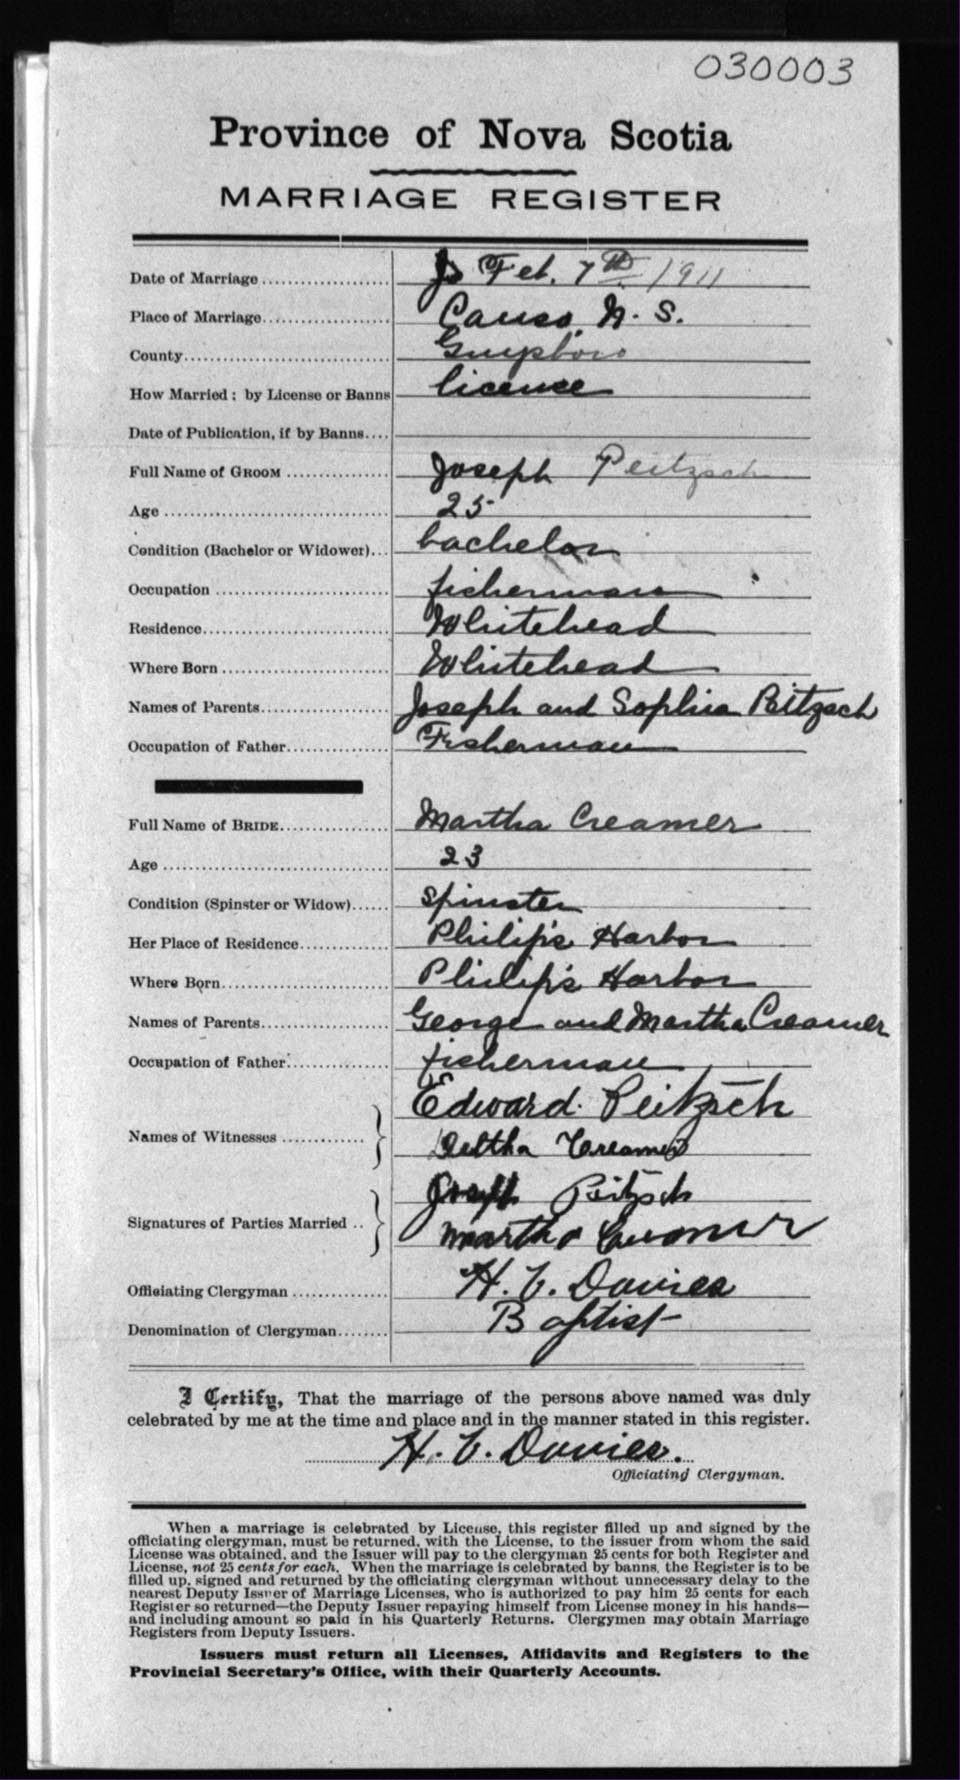 030003
Province of Nova Scotia
MARRIAGE REGISTER
Date of Marriage Feb. 7th 1911
Place of Marriage Canso, N. S.
County Guysboro
How Married: by License or Banns licence
Date of Publication, if by Banns
Full Name of GROOM Joseph Peitzsch
Age 25
Condition (Bachelor or Widower) bachelor
Occupation fisherman
Residence Whitehead
Where Born Whitehead
Names of Parents Joseph and Sophia Peitzsch
Occupation of Father Fisherman
Full Name of BRIDE Martha Creamer
Age 23
Condition (Spinster or Widow) spinster
Her Place of Residence Philip's Harbor
Where Born Philip's Harbor
Names of Parents George and Martha Creamer
Occupation of Father fisherman
Edward Peitzsch
Names of Witnesses
Creamer
Joseph Peitzsch
Signatures of Parties Married
Martha Creamer
Officiating Clergyman H. V. Davies
Denomination of Clergyman Baptist
I Certify, That the marriage of the persons above named was duly
celebrated by me at the time and place and in the manner stated in this register.
H. V. Davies.
Officiating Clergyman.
When a marriage is celebrated by License, this register filled up and signed by the
officiating clergyman, must be returned, with the License, to the issuer from whom the said
License was obtained, and the Issuer will pay to the clergyman 25 cents for both Register and
License, not 25 cents for each. When the marriage is celebrated by banns, the Register is to be
filled up, signed and returned by the officiating clergyman without unnecessary delay to the
nearest Deputy Issuer of Marriage Licenses, who is authorized to pay him 25 cents for each
Register so returned—the Deputy Issuer repaying himself from License money in his hands—
and including amount so paid in his Quarterly Returns. Clergymen may obtain Marriage
Registers from Deputy Issuers.
Issuers must return all Licenses, Affidavits and Registers to the
Provincial Secretary's Office, with their Quarterly Accounts.